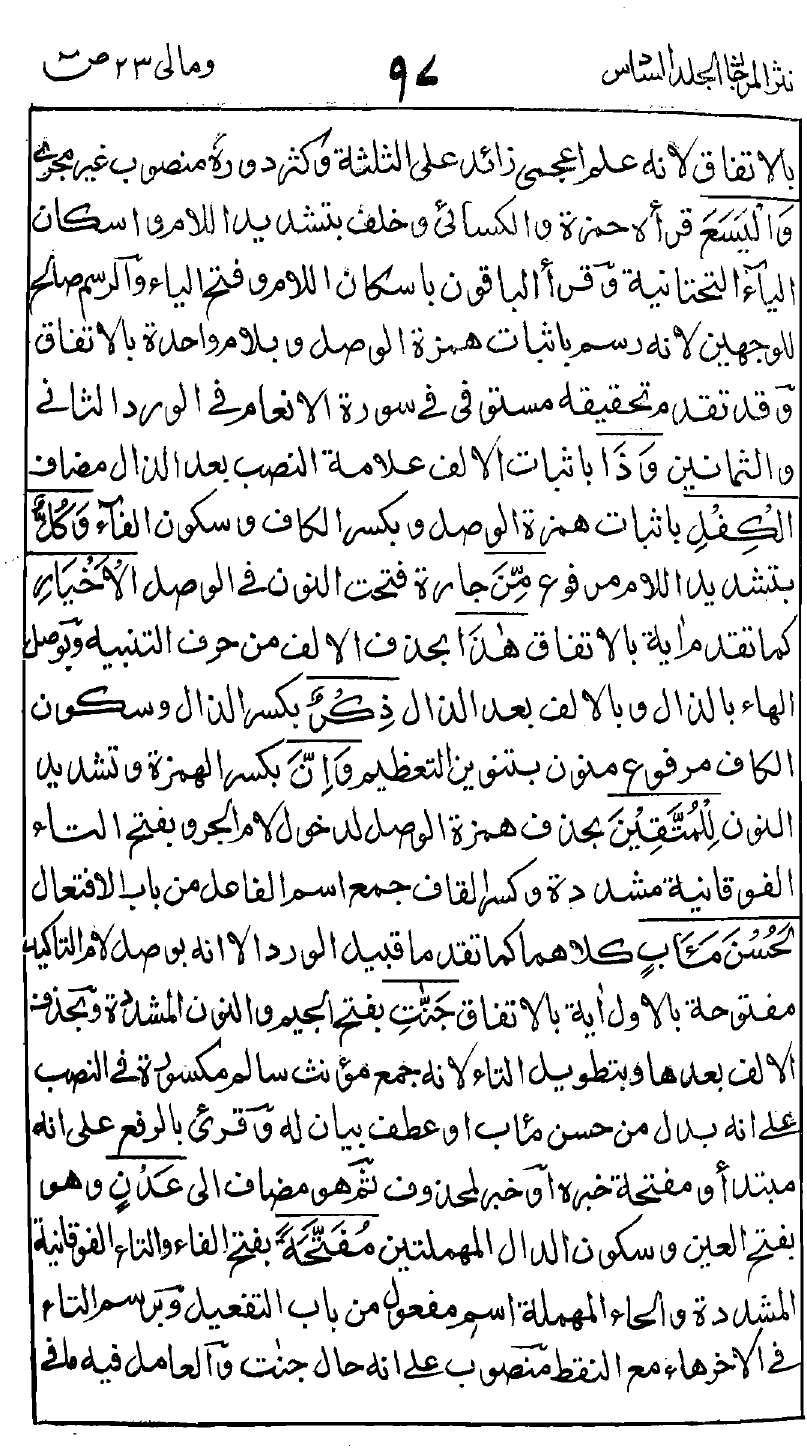 نثر المرجان الجلد السادس ٩٧ ومالی ٢٣ ص
بالاتفاق لانه علم اعجمی زائد علی الثلثة وکثر دوره منصوب غیر مجری
وَالْیَسَعَ قرأه حمزة والکسائی وخلف بتشدید اللام واسکان
الیآء التحتانیة وقرأ الباقون باسکان اللام وفتح الیاء والرسم صالح
للوجهین لانه رسم باثبات همزة الوصل وبلام واحدة بالاتفاق
وقد تقدم تحقیقه مستوفی فی سورة الانعام فی الورد الثانی
والثمانین وَذَا باثبات الالف علامة النصب بعد الذال مضاف
الْکِفْلِ باثبات همزة الوصل وبکسر الکاف وسکون الفآء وَکُلٌّ
بتشدید اللام مرفوع مِّنَ جارة فتحت النون فی الوصل الْاَخْیَارِ
کما تقدم اٰیة بالاتفاق هٰذَا بحذف الالف من حرف التنبیه وبوصل
الهاء بالذال وبالالف بعد الذال ذِکْرٌ بکسر الذال وسکون
الکاف مرفوع منون بتنوین التعظیم وَاِنَّ بکسر الهمزة وتشدید
النون لِلْمُتَّقِیْنَ بحذف همزة الوصل لدخول لام الجر وبفتح التاء
الفوقانیة مشددة وکسر القاف جمع اسم الفاعل من باب الافتعال
لَحُسْنَ مَـَٔابٍ کلاهما کما تقدم ما قبیل الورد الا انه بوصل لام التاکید
مفتوحة بالاول اٰیة بالاتفاق جَنّٰتِ بفتح الجیم والنون المشددة وبحذف
الالف بعدها وبتطویل التاء لانه جمع مؤنث سالم مکسورة فی النصب
علی انه بدل من حسن مئاب او عطف بیان له وقرئ بالرفع علی انه
مبتدأ ومفتحة خبره او خبر لمحذوف ثم هو مضاف الی عَدْنٍ وهو
بفتح العین وسکون الدال المهملتین مُفَتَّحَةً بفتح الفاء والتاء الفوقانیة
المشددة والحاء المهملة اسم مفعول من باب التفعیل وبرسم التاء
فی الاخر هاء مع النقط منصوب علی انه حال جنٰت والعامل فیه ما فی